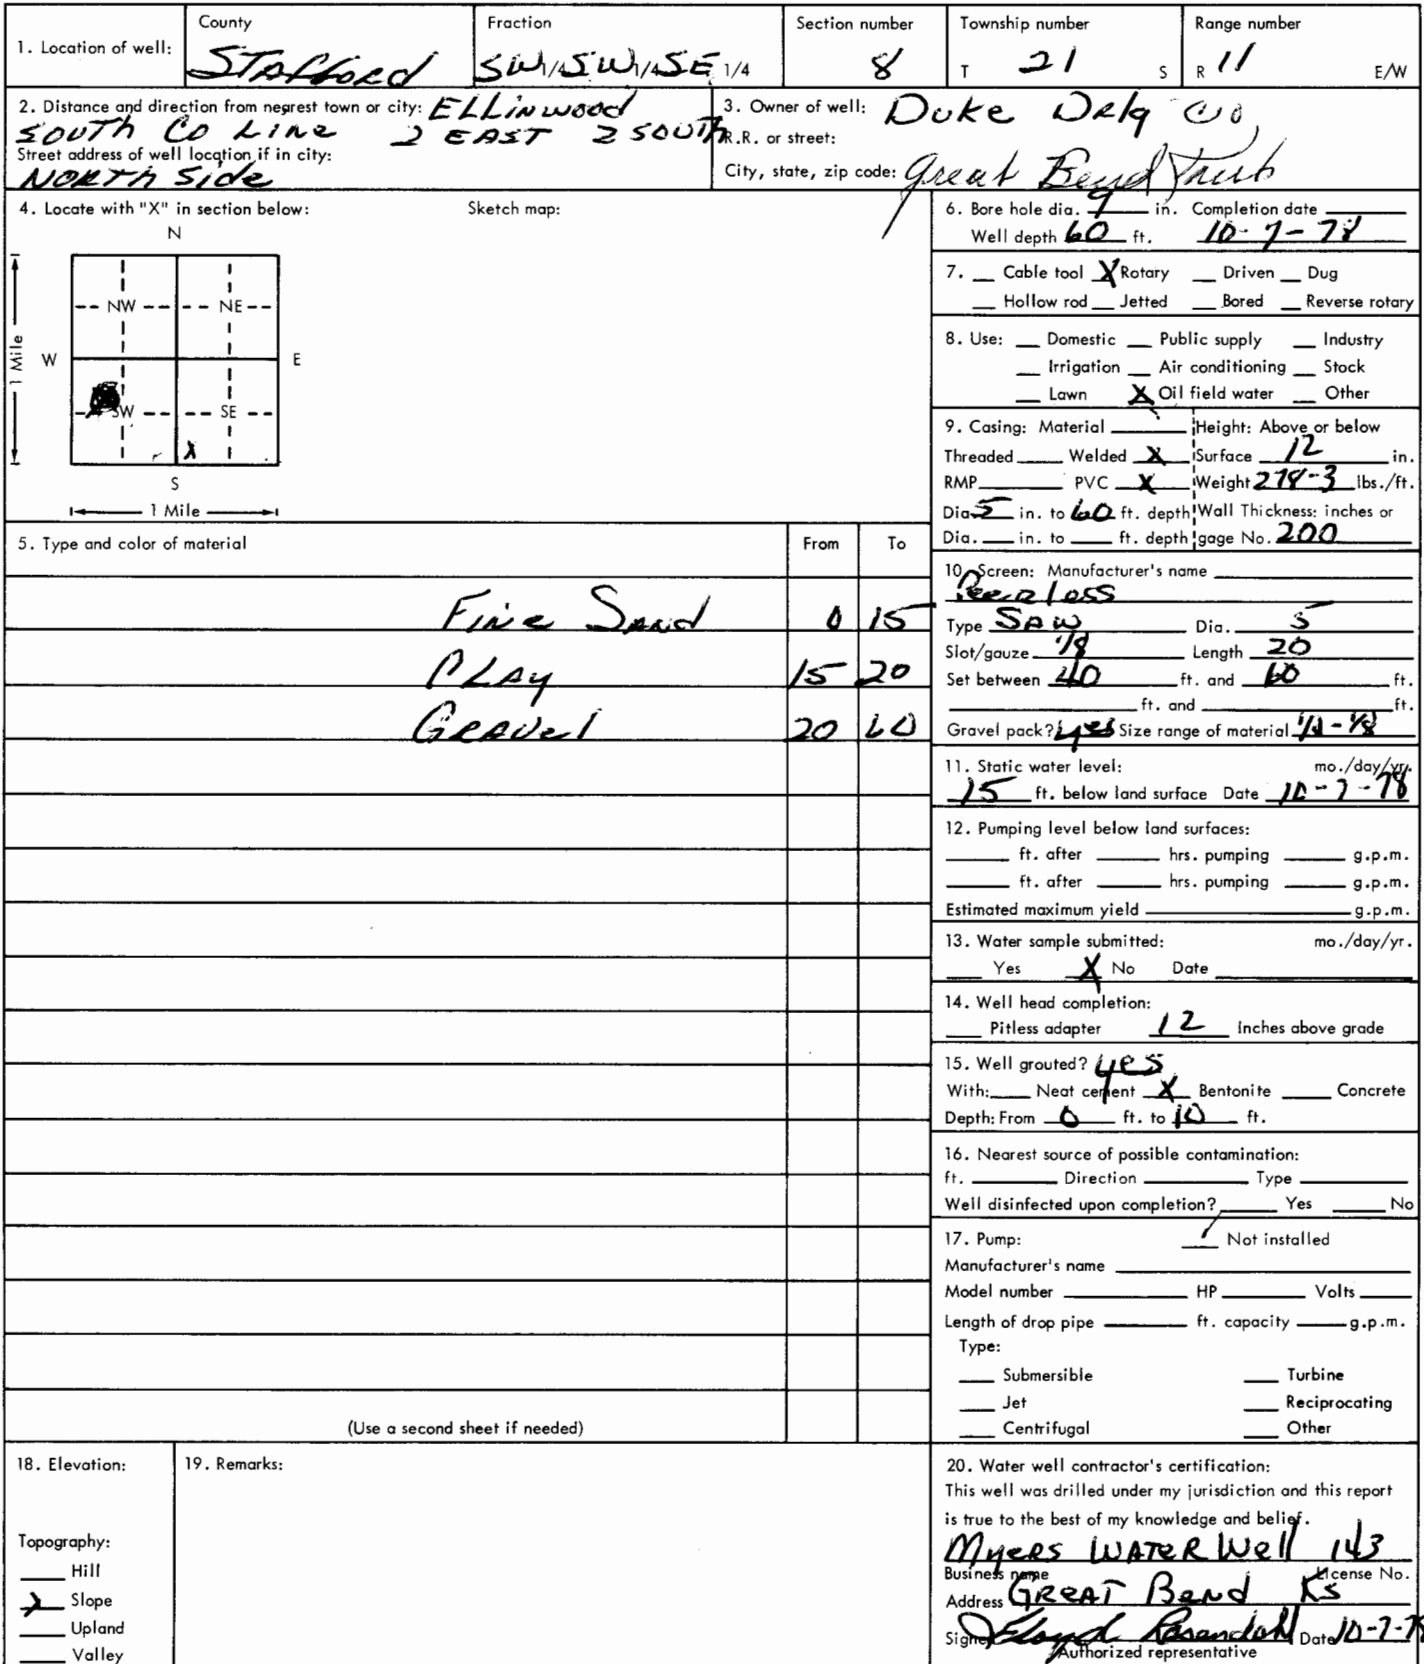 1. Location of well:
County
Stafford
Fraction
SW 1/4 SW 1/4 SE 1/4
Section number
8
Township number
T 21 S
Range number
R 11 E/W
2. Distance and direction from nearest town or city: ELLinwood
South Co Line 2 EAST 2 SOUTH
Street address of well location if in city:
North Side
3. Owner of well: Duke Drlg Co,
R.R. or street:
City, state, zip code: Great Bend
4. Locate with "X" in section below:
Sketch map:
N
NW NE
W E
1 Mile
SW SE
X
S
1 Mile
5. Type and color of material From To
Fine Sand 0 15
Clay 15 20
Gravel 20 60
(Use a second sheet if needed)
6. Bore hole dia. 9 in. Completion date
Well depth 60 ft. 10-7-78
7. Cable tool X Rotary Driven Dug
Hollow rod Jetted Bored Reverse rotary
8. Use: Domestic Public supply Industry
Irrigation Air conditioning Stock
Lawn X Oil field water Other
9. Casing: Material Height: Above or below
Threaded Welded X Surface 12 in.
RMP PVC X Weight 278-3 lbs./ft.
Dia. 5 in. to 60 ft. depth Wall Thickness: inches or
Dia. in. to ft. depth gage No. 200
10. Screen: Manufacturer's name
Peerless
Type Saw Dia. 5
Slot/gauze 1/8 Length 20
Set between 40 ft. and 60 ft.
ft. and ft.
Gravel pack? yes Size range of material 1/4-1/8
11. Static water level: mo./day/yr.
15 ft. below land surface Date 10-7-78
12. Pumping level below land surfaces:
ft. after hrs. pumping g.p.m.
ft. after hrs. pumping g.p.m.
Estimated maximum yield g.p.m.
13. Water sample submitted: mo./day/yr.
Yes X No Date
14. Well head completion:
Pitless adapter 12 Inches above grade
15. Well grouted? yes
With: Neat cement X Bentonite Concrete
Depth: From 0 ft. to 10 ft.
16. Nearest source of possible contamination:
ft. Direction Type
Well disinfected upon completion? Yes No
17. Pump: Not installed
Manufacturer's name
Model number HP Volts
Length of drop pipe ft. capacity g.p.m.
Type:
Submersible Turbine
Jet Reciprocating
Centrifugal Other
18. Elevation:
Topography:
Hill
X Slope
Upland
Valley
19. Remarks:
20. Water well contractor's certification:
This well was drilled under my jurisdiction and this report
is true to the best of my knowledge and belief.
Myers Water Well 143
Business name License No.
Address Great Bend Ks
Signed Floyd Rosendahl Date 10-7-78
Authorized representative